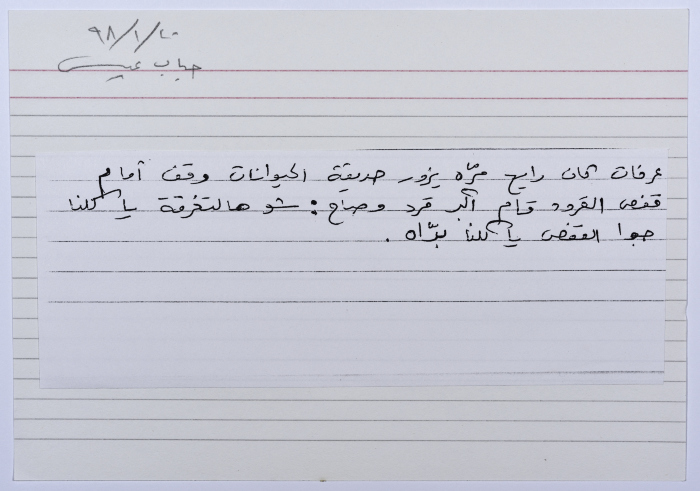 ٩٨/١/٢٠
حباب عيسى
عرفات كان رايح مرّه يزور حديقة الحيوانات وقف أمام
قفص القرود قام أكبر قرد وصاح: شو هالتفرقة يا كلنا
جوا القفص يا كلنا برّاه.